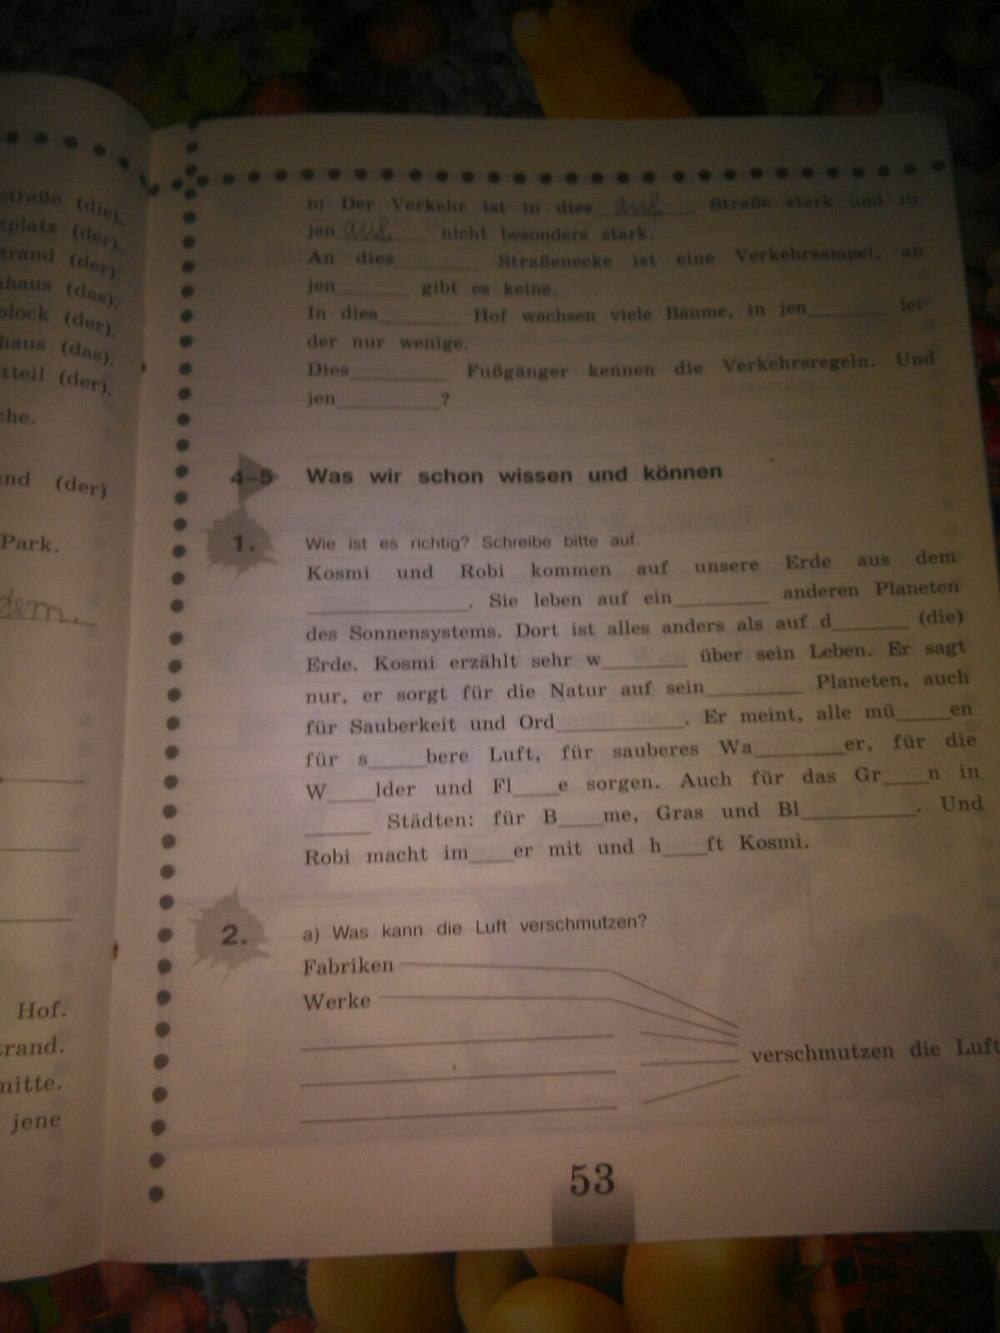 straße (die),
platz (der),
trand (der),
haus (das),
block (der),
haus (das),
tteil (der),
che.
nd (der)
Park.
dem.
Hof.
rand.
mitte.
jene
b) Der Verkehr ist in dies____ Straße stark und in
jen____ nicht besonders stark.
An dies____ Straßenecke ist eine Verkehrsampel, an
jen____ gibt es keine.
In dies____ Hof wachsen viele Bäume, in jen____ lei-
der nur wenige.
Dies____ Fußgänger kennen die Verkehrsregeln. Und
jen____?
4–5 Was wir schon wissen und können
1. Wie ist es richtig? Schreibe bitte auf.
Kosmi und Robi kommen auf unsere Erde aus dem
____. Sie leben auf ein____ anderen Planeten
des Sonnensystems. Dort ist alles anders als auf d____ (die)
Erde. Kosmi erzählt sehr w____ über sein Leben. Er sagt
nur, er sorgt für die Natur auf sein____ Planeten, auch
für Sauberkeit und Ord____. Er meint, alle mü____en
für s____bere Luft, für sauberes Wa____er, für die
W____lder und Fl____e sorgen. Auch für das Gr____n in
____ Städten: für B____me, Gras und Bl____. Und
Robi macht im____er mit und h____ft Kosmi.
2. a) Was kann die Luft verschmutzen?
Fabriken
Werke
verschmutzen die Luft
53